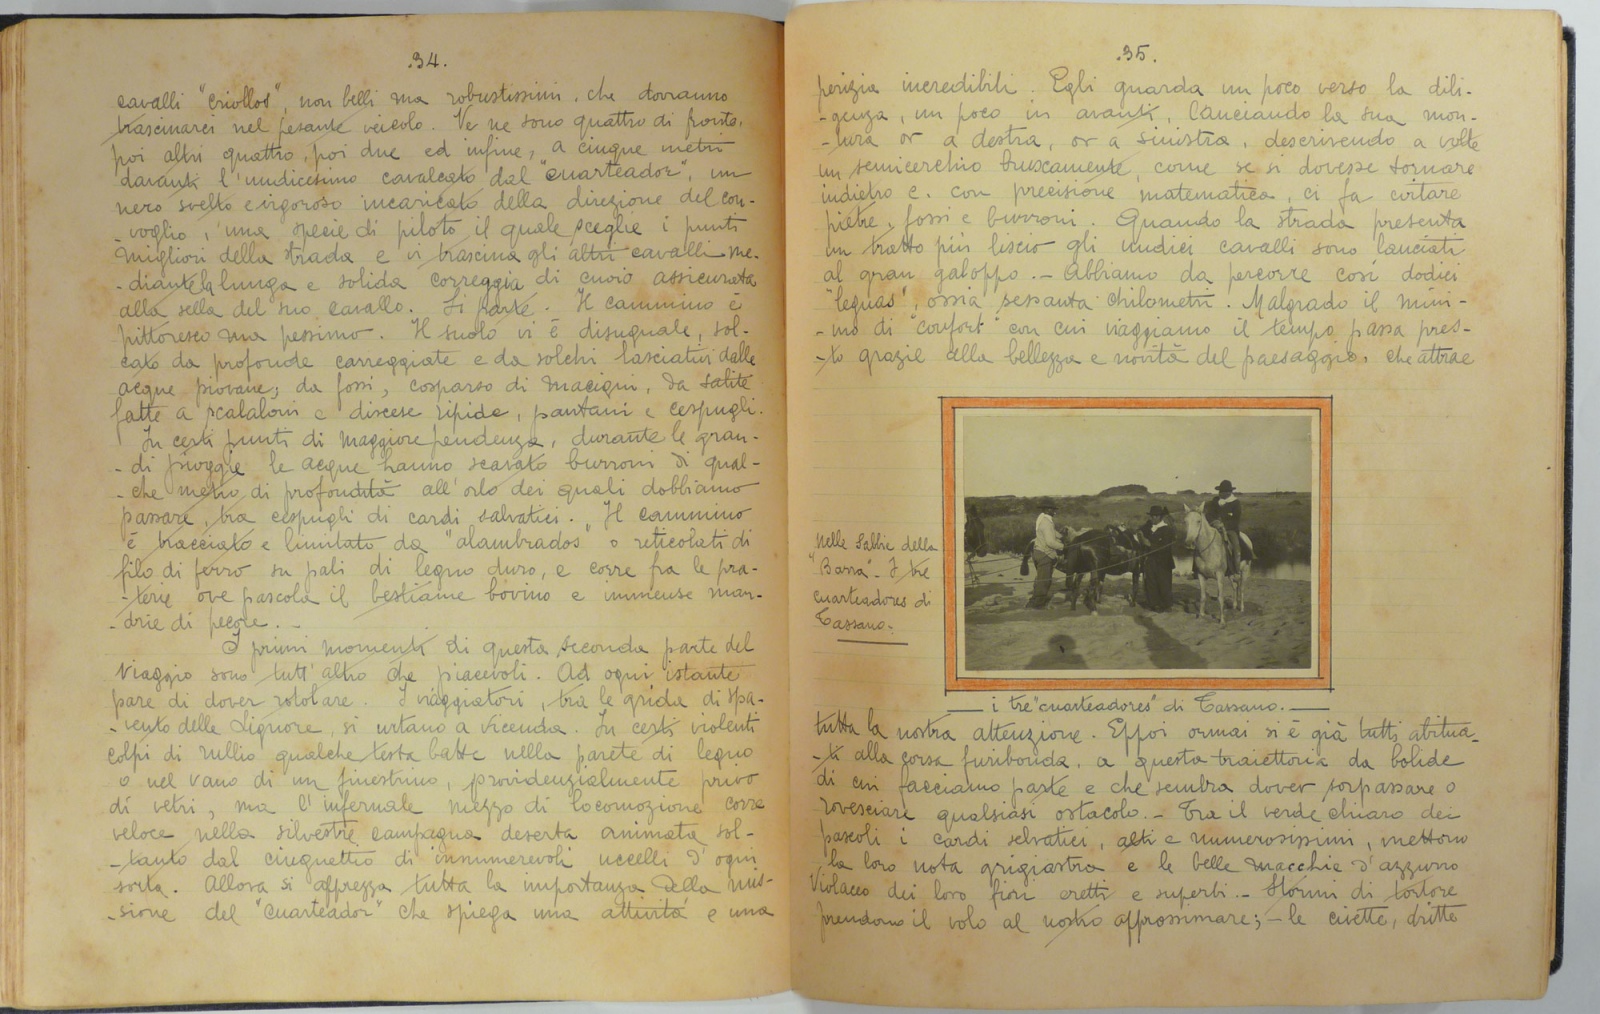 .34.
cavalli "criollos", non belli ma robustissimi, che dovranno
trascinarci nel pesante veicolo. Ve ne sono quattro di fronte,
poi altri quattro, poi due ed infine, a cinque metri
davanti l'undicesimo cavalcato dal "cuarteador", un
nero svelto e vigoroso incaricato della direzione del con-
-voglio, una specie di piloto il quale sceglie i punti
migliori della strada e vi trascina gli altri cavalli me-
-diante la lunga e solida correggia di cuoio assicurata
alla sella del suo cavallo. Si parte. Il cammino è
pittoresco ma pessimo. Il suolo vi è disuguale, sol-
cato da profonde carreggiate e da solchi lasciativi dalle
acque piovane; da fossi, cosparso di macigni, da salite
fatte a scalaloni e discese ripide, pantani e cespugli.
In certi punti di maggiore pendenza, durante le gran-
-di pioggie le acque hanno scavato burroni di qual-
-che metro di profondità all'orlo dei quali dobbiamo
passare, tra cespugli di cardi salvatici. Il cammino
è tracciato e limitato da "alambrados" o reticolati di
filo di ferro su pali di legno duro, e corre fra le pra-
-terie ove pascola il bestiame bovino e immense man-
-drie di pecore. -
I primi momenti di questa seconda parte del
viaggio sono tutt'altro che piacevoli. Ad ogni istante
pare di dover rotolare. I viaggiatori, tra le grida di spa-
-vento delle Signore, si urtano a vicenda. In certi violenti
colpi di rullio qualche testa batte nella parete di legno
o nel vano di un finestrino, provvidenzialmente privo
di vetri, ma l'infernale mezzo di locomozione corre
veloce nella silvestre campagna deserta animata sol-
-tanto dal cinguettio di innumerevoli uccelli d'ogni
sorta. Allora si apprezza tutta la importanza della mis-
-sione del "cuarteador" che spiega una attività e una
.35.
perizia incredibili. Egli guarda un poco verso la dili-
-genza, un poco in avanti, lanciando la sua mon-
-tura or a destra, or a sinistra, descrivendo a volte
un semicerchio bruscamente, come se si dovesse tornare
indietro e. con precisione matematica, ci fa evitare
pietre, fossi e burroni. Quando la strada presenta
un tratto più liscio gli undici cavalli sono lanciati
al gran galoppo. - Abbiamo da percorre così dodici
"leguas", ossia sessanta chilometri. Malgrado il mini-
-mo di "confort" con cui viaggiamo il tempo passa pres-
-to grazie alla bellezza e novità del paesaggio, che attrae
nelle sabbie della
"Barra". I tre
cuarteadores di
Cassano.-
i tre "cuarteadores" di Cassano.-
tutta la nostra attenzione. Eppoi ormai si è già tutti abitua-
-ti alla corsa furibonda, a questa traiettoria da bolide
di cui facciamo parte e che sembra dover sorpassare o
rovesciare qualsiasi ostacolo. - Tra il verde chiaro dei
pascoli i cardi selvatici, alti e numerosissimi, mettono
la loro nota grigiastra e le belle macchie d'azzurro
violaceo dei loro fiori eretti e superbi. - Stormi di tortore
prendono il volo al nostro approssimare; - le civette, dritte